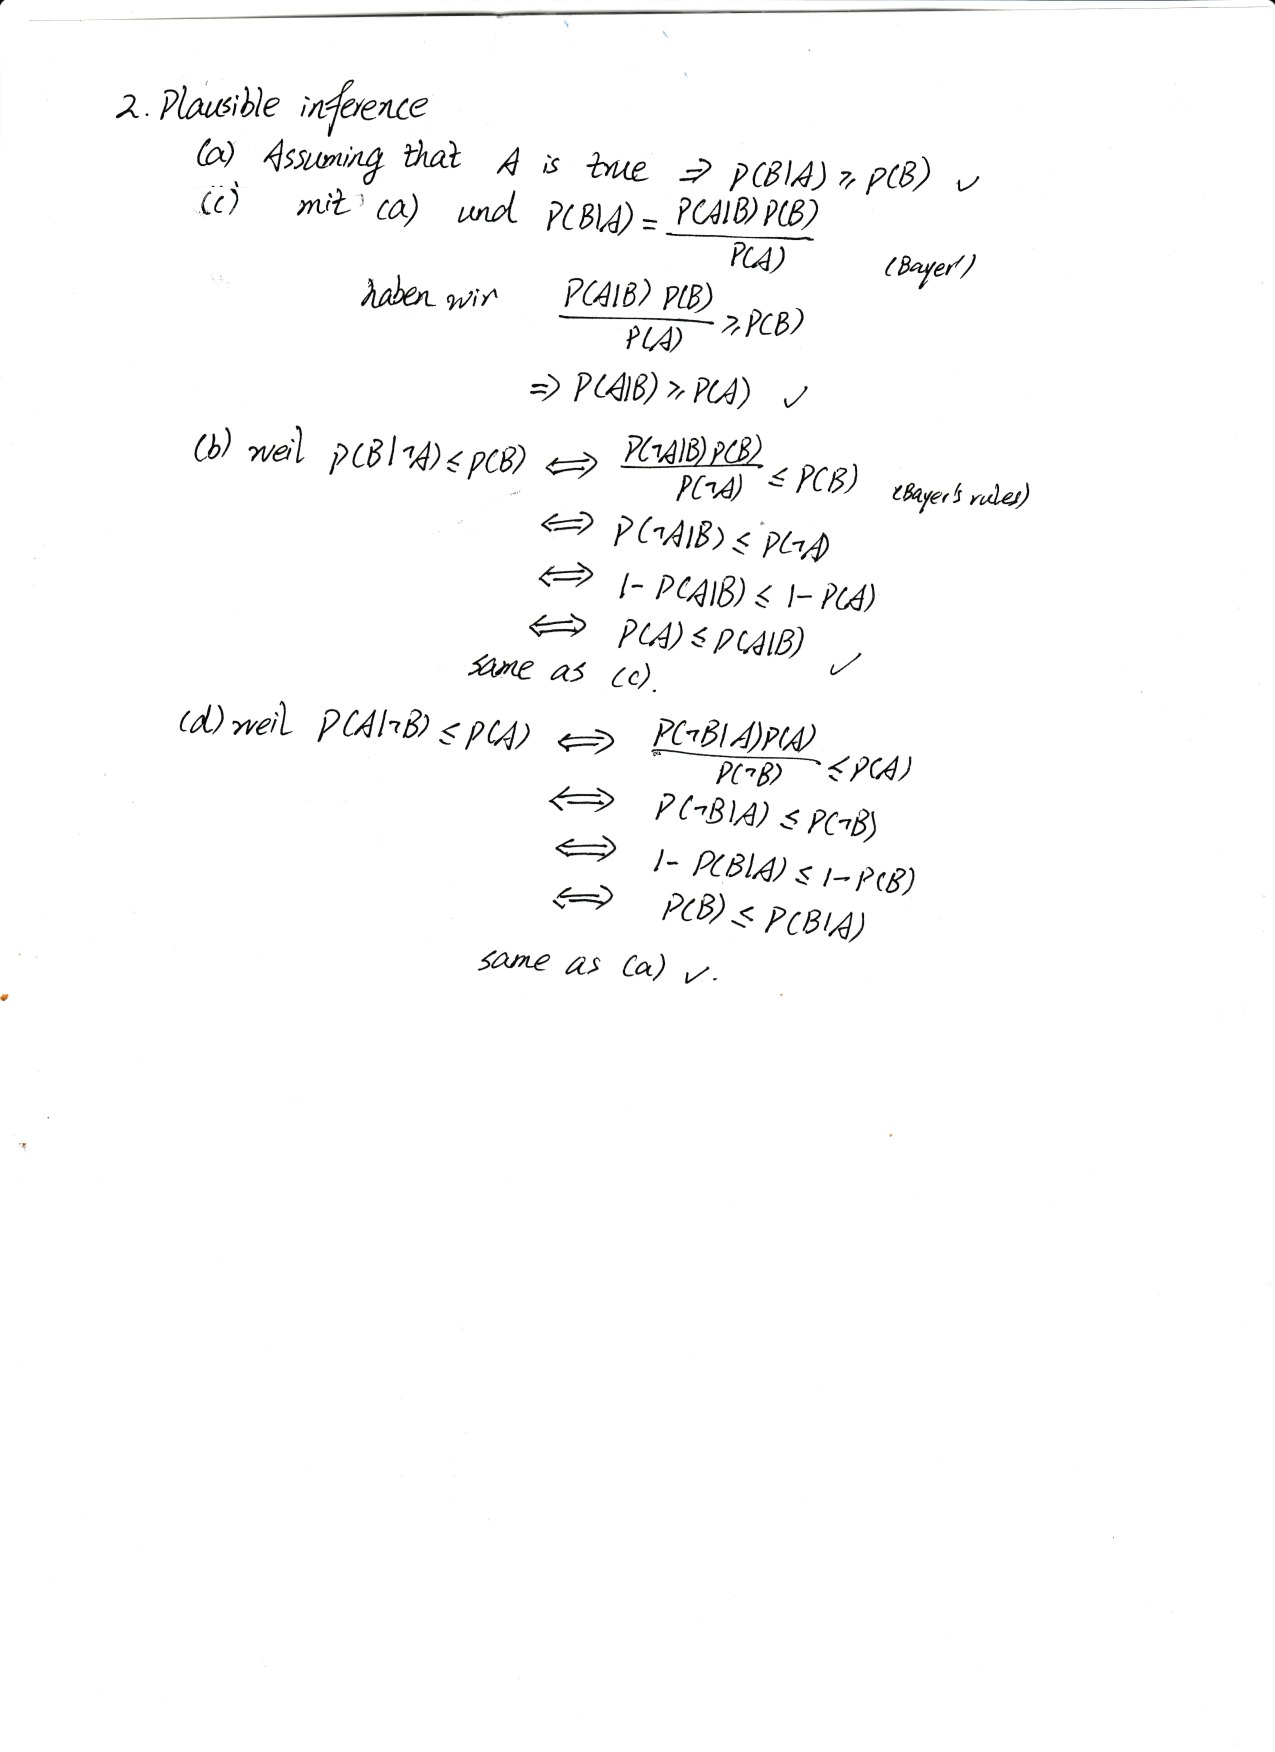 2. Plausible inference
(a) Assuming that A is true ⇒ P(B|A) ≥ P(B) ✓
(c) mit (a) und P(B|A) = P(A|B) P(B) / P(A) (Bayer')
haben wir P(A|B) P(B) / P(A) ≥ P(B)
⇒ P(A|B) ≥ P(A) ✓
(b) weil P(B|¬A) ≤ P(B) ⇔ P(¬A|B) P(B) / P(¬A) ≤ P(B) (Bayer's rules)
⇔ P(¬A|B) ≤ P(¬A)
⇔ 1 - P(A|B) ≤ 1 - P(A)
⇔ P(A) ≤ P(A|B) ✓
same as (c).
(d) weil P(A|¬B) ≤ P(A) ⇔ P(¬B|A) P(A) / P(¬B) ≤ P(A)
⇔ P(¬B|A) ≤ P(¬B)
⇔ 1 - P(B|A) ≤ 1 - P(B)
⇔ P(B) ≤ P(B|A)
same as (a) ✓.